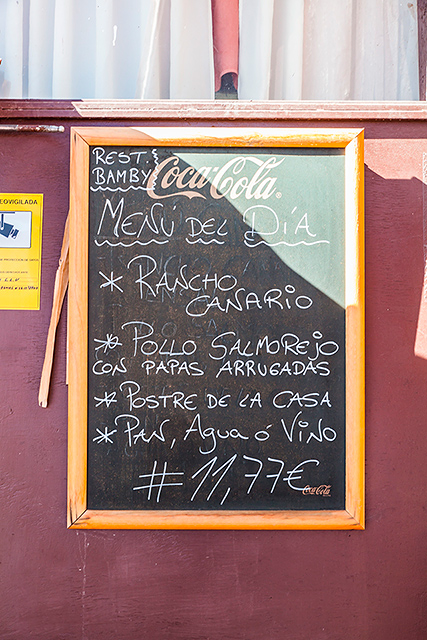 REST.
BAMBY
Coca-Cola
MENÚ DEL DÍA
* RANCHO
CANARIO
* POLLO SALMOREJO
CON PAPAS ARRUGADAS
* POSTRE DE LA CASA
* PAN, AGUA ó VINO
# 11,77€
Coca-Cola